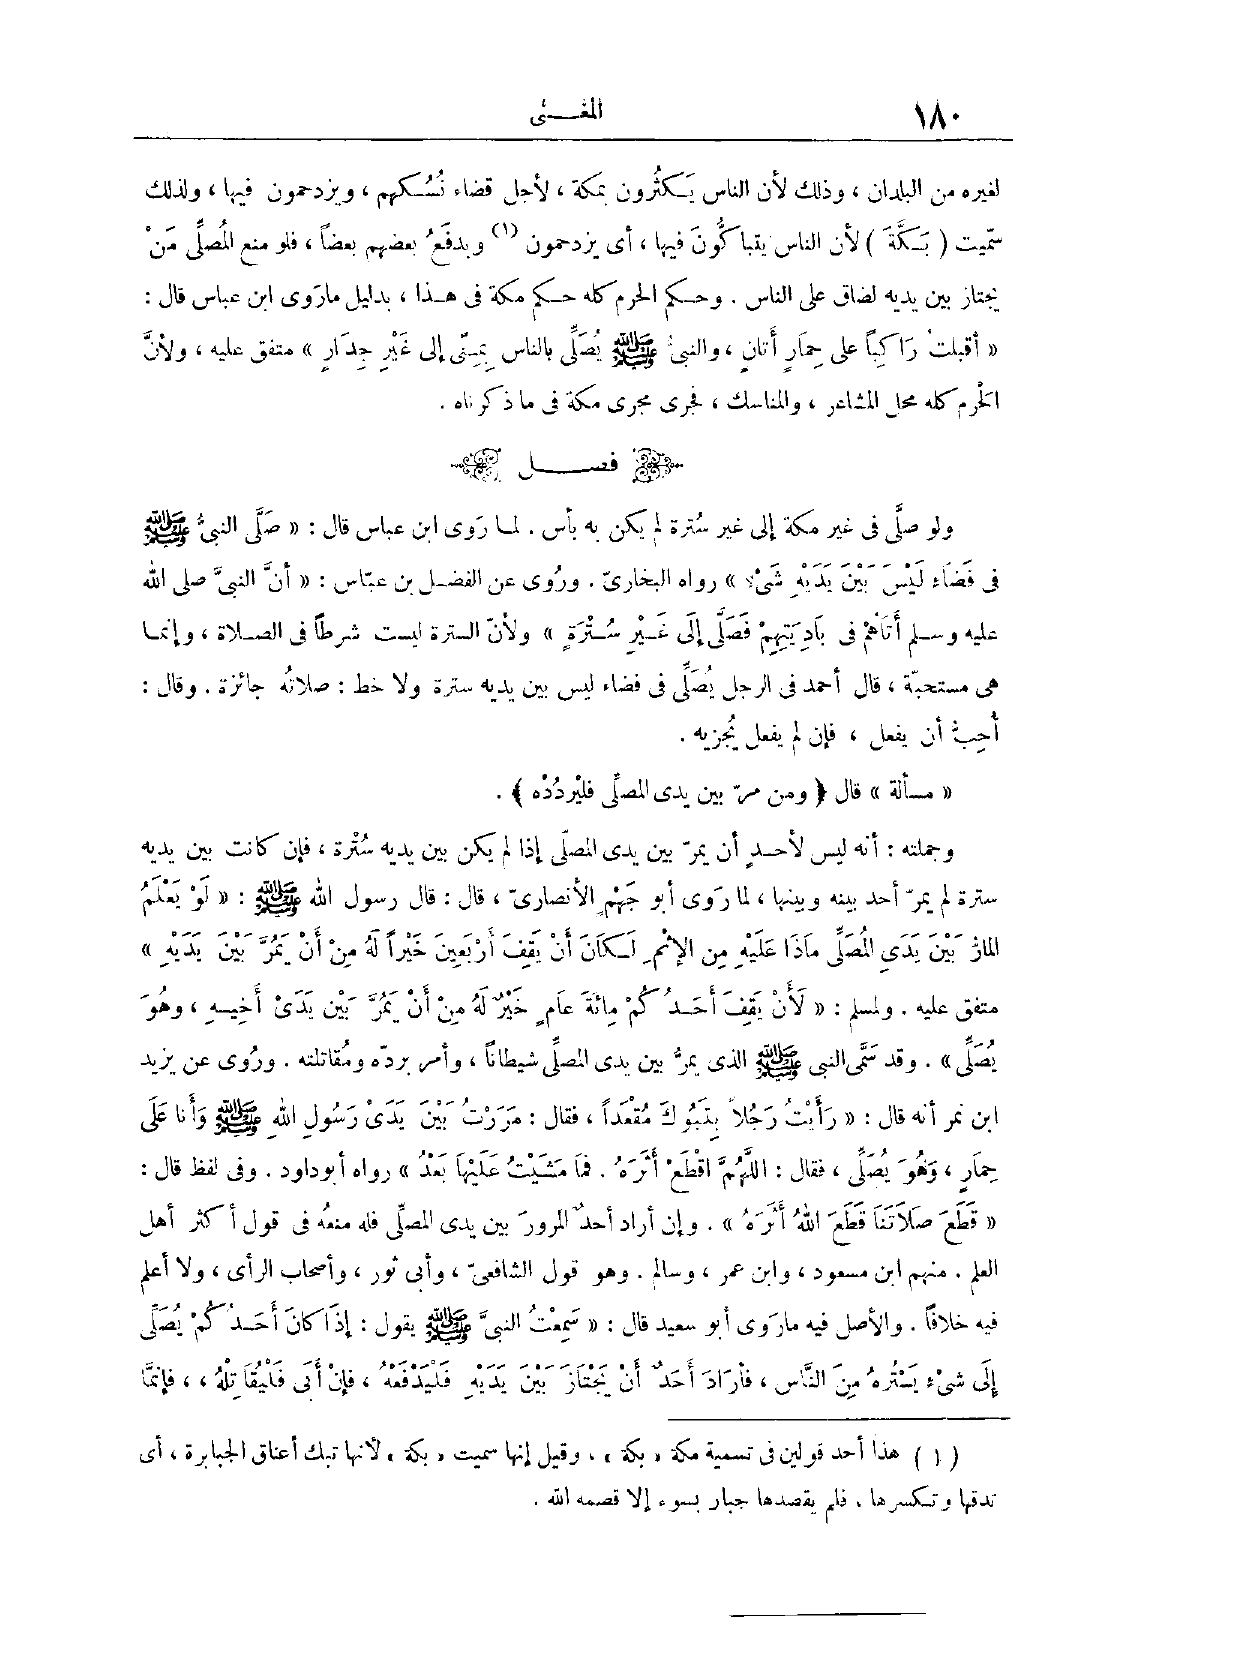 ١٨٠
المغـــنى
لغيره من البلدان ، وذلك لأن الناس يَكْثُرون بمكة ، لأجل قضاء نُسُكهم ، ويزدحمون فيها ، ولذلك
سمّيت ( بَكَّةَ ) لأن الناس يتباكُّونَ فيها ، أى يزدحمون (١) ويدفَعُ بعضهم بعضاً ، فلو منع المُصلِّى مَنْ
يجتاز بين يديه لضاق على الناس . وحكم الحرم كله حكم مكة فى هذا ، بدليل ماروى ابن عباس قال :
« أقبلتُ رَاكِباً على حِمَارٍ أتانٍ ، والنبىُّ ﷺ يُصَلِّى بالناس بِمِنًى إلى غَيْرِ جِدَارٍ » متفق عليه ، ولأنَّ
الحَرَم كله محل المشاعر ، والمناسك ، فجرى مجرى مكة فى ما ذكرناه .
فصـــل
ولو صلَّى فى غير مكة إلى غير سُترة لم يكن به بأس . لما رَوى ابن عباس قال : « صَلَّى النبىُّ ﷺ
فى فَضَاء لَيْسَ بَيْنَ يَدَيْهِ شَىْءٌ » رواه البخارىّ . ورُوى عن الفضل بن عبّاس : « أنَّ النبىَّ صلى الله
عليه وسلم أَتَاهُمْ فى بَادِيَتِهِمْ فَصَلَّى إلَى غَيْرِ سُتْرَةٍ » ولأنّ السترة ليست شرطاً فى الصلاة ، وإنما
هى مستحبّة ، قال أحمد فى الرجل يُصَلِّى فى فضاء ليس بين يديه سترة ولا خط : صلاتُه جائزة . وقال :
أُحِبُّ أن يفعل ، فإن لم يفعل يُجزيه .
« مسألة » قال ﴿ ومن مرّ بين يدى المصلِّى فليْردُدْه ﴾ .
وجملته : أنه ليس لأحدٍ أن يمرّ بين يدى المصلّى إذا لم يكن بين يديه سُتْرة ، فإن كانت بين يديه
سترة لم يمرّ أحد بينه وبينها ، لما رَوى أبو جَهْمٍ الأنصارىّ ، قال : قال رسول الله ﷺ : « لَوْ يَعْلَمُ
المارُّ بَيْنَ يَدَىِ المُصَلِّى مَاذَا عَلَيْهِ مِن الإثْمِ لَكَانَ أَنْ يَقِفَ أَرْبَعِينَ خَيْراً لَهُ مِنْ أَنْ يَمُرَّ بَيْنَ يَدَيْهِ »
متفق عليه . ولمسلم : « لَأَنْ يَقِفَ أَحَدُكُمْ مِائَةَ عَامٍ خَيْرٌ لَهُ مِنْ أَنْ يَمُرَّ بَيْن يَدَىْ أَخِيهِ ، وهُوَ
يُصَلِّى » . وقد سَمَّى النبى ﷺ الذى يمرُّ بين يدى المصلِّى شيطاناً ، وأمر بردّه ومُقاتلته . ورُوى عن يزيد
ابن نمر أنه قال : « رَأَيْتُ رَجُلاً بِتَبُوكَ مُقْعَداً ، فقال : مَرَرْتُ بَيْنَ يَدَىْ رَسُولِ اللهِ ﷺ وَأَنا عَلَى
حِمَارٍ ، وَهُوَ يُصَلِّى ، فقال : اللَّهُمَّ اقْطَعْ أَثَرَهُ . فمَا مَشَيْتُ عَلَيْهَا بَعْدُ » رواه أبوداود . وفى لفظ قال :
« قَطَعَ صَلاَتَنَا قَطَعَ اللهُ أَثَرَهُ » . وإن أراد أحدٌ المرورَ بين يدى المصلِّى فله منعُه فى قول أكثر أهل
العلم . منهم ابن مسعود ، وابن عمر ، وسالم . وهو قول الشافعىّ ، وأبى ثور ، وأصحاب الرأى ، ولا أعلم
فيه خلافاً . والأصل فيه مارَوى أبو سعيد قال : « سَمِعْتُ النبىَّ ﷺ يقول : إذَا كانَ أَحَدُكُمْ يُصَلِّى
إلَى شىْءٍ يَسْتُرهُ مِنَ النَّاس ، فأرَادَ أَحَدٌ أَنْ يَجْتَازَ بَيْنَ يَدَيْهِ فَلْيَدْفَعْهُ ، فإنْ أَبَى فَلْيُقَاتِلْهُ ، ، فإنمَّا
( ١ ) هذا أحد قولين فى تسمية مكة « بكة » ، وقيل إنها سميت « بكة » لأنها تبك أعناق الجبابرة ، أى
تدقها وتكسرها ، فلم يقصدها جبار بسوء إلا قصمه الله .